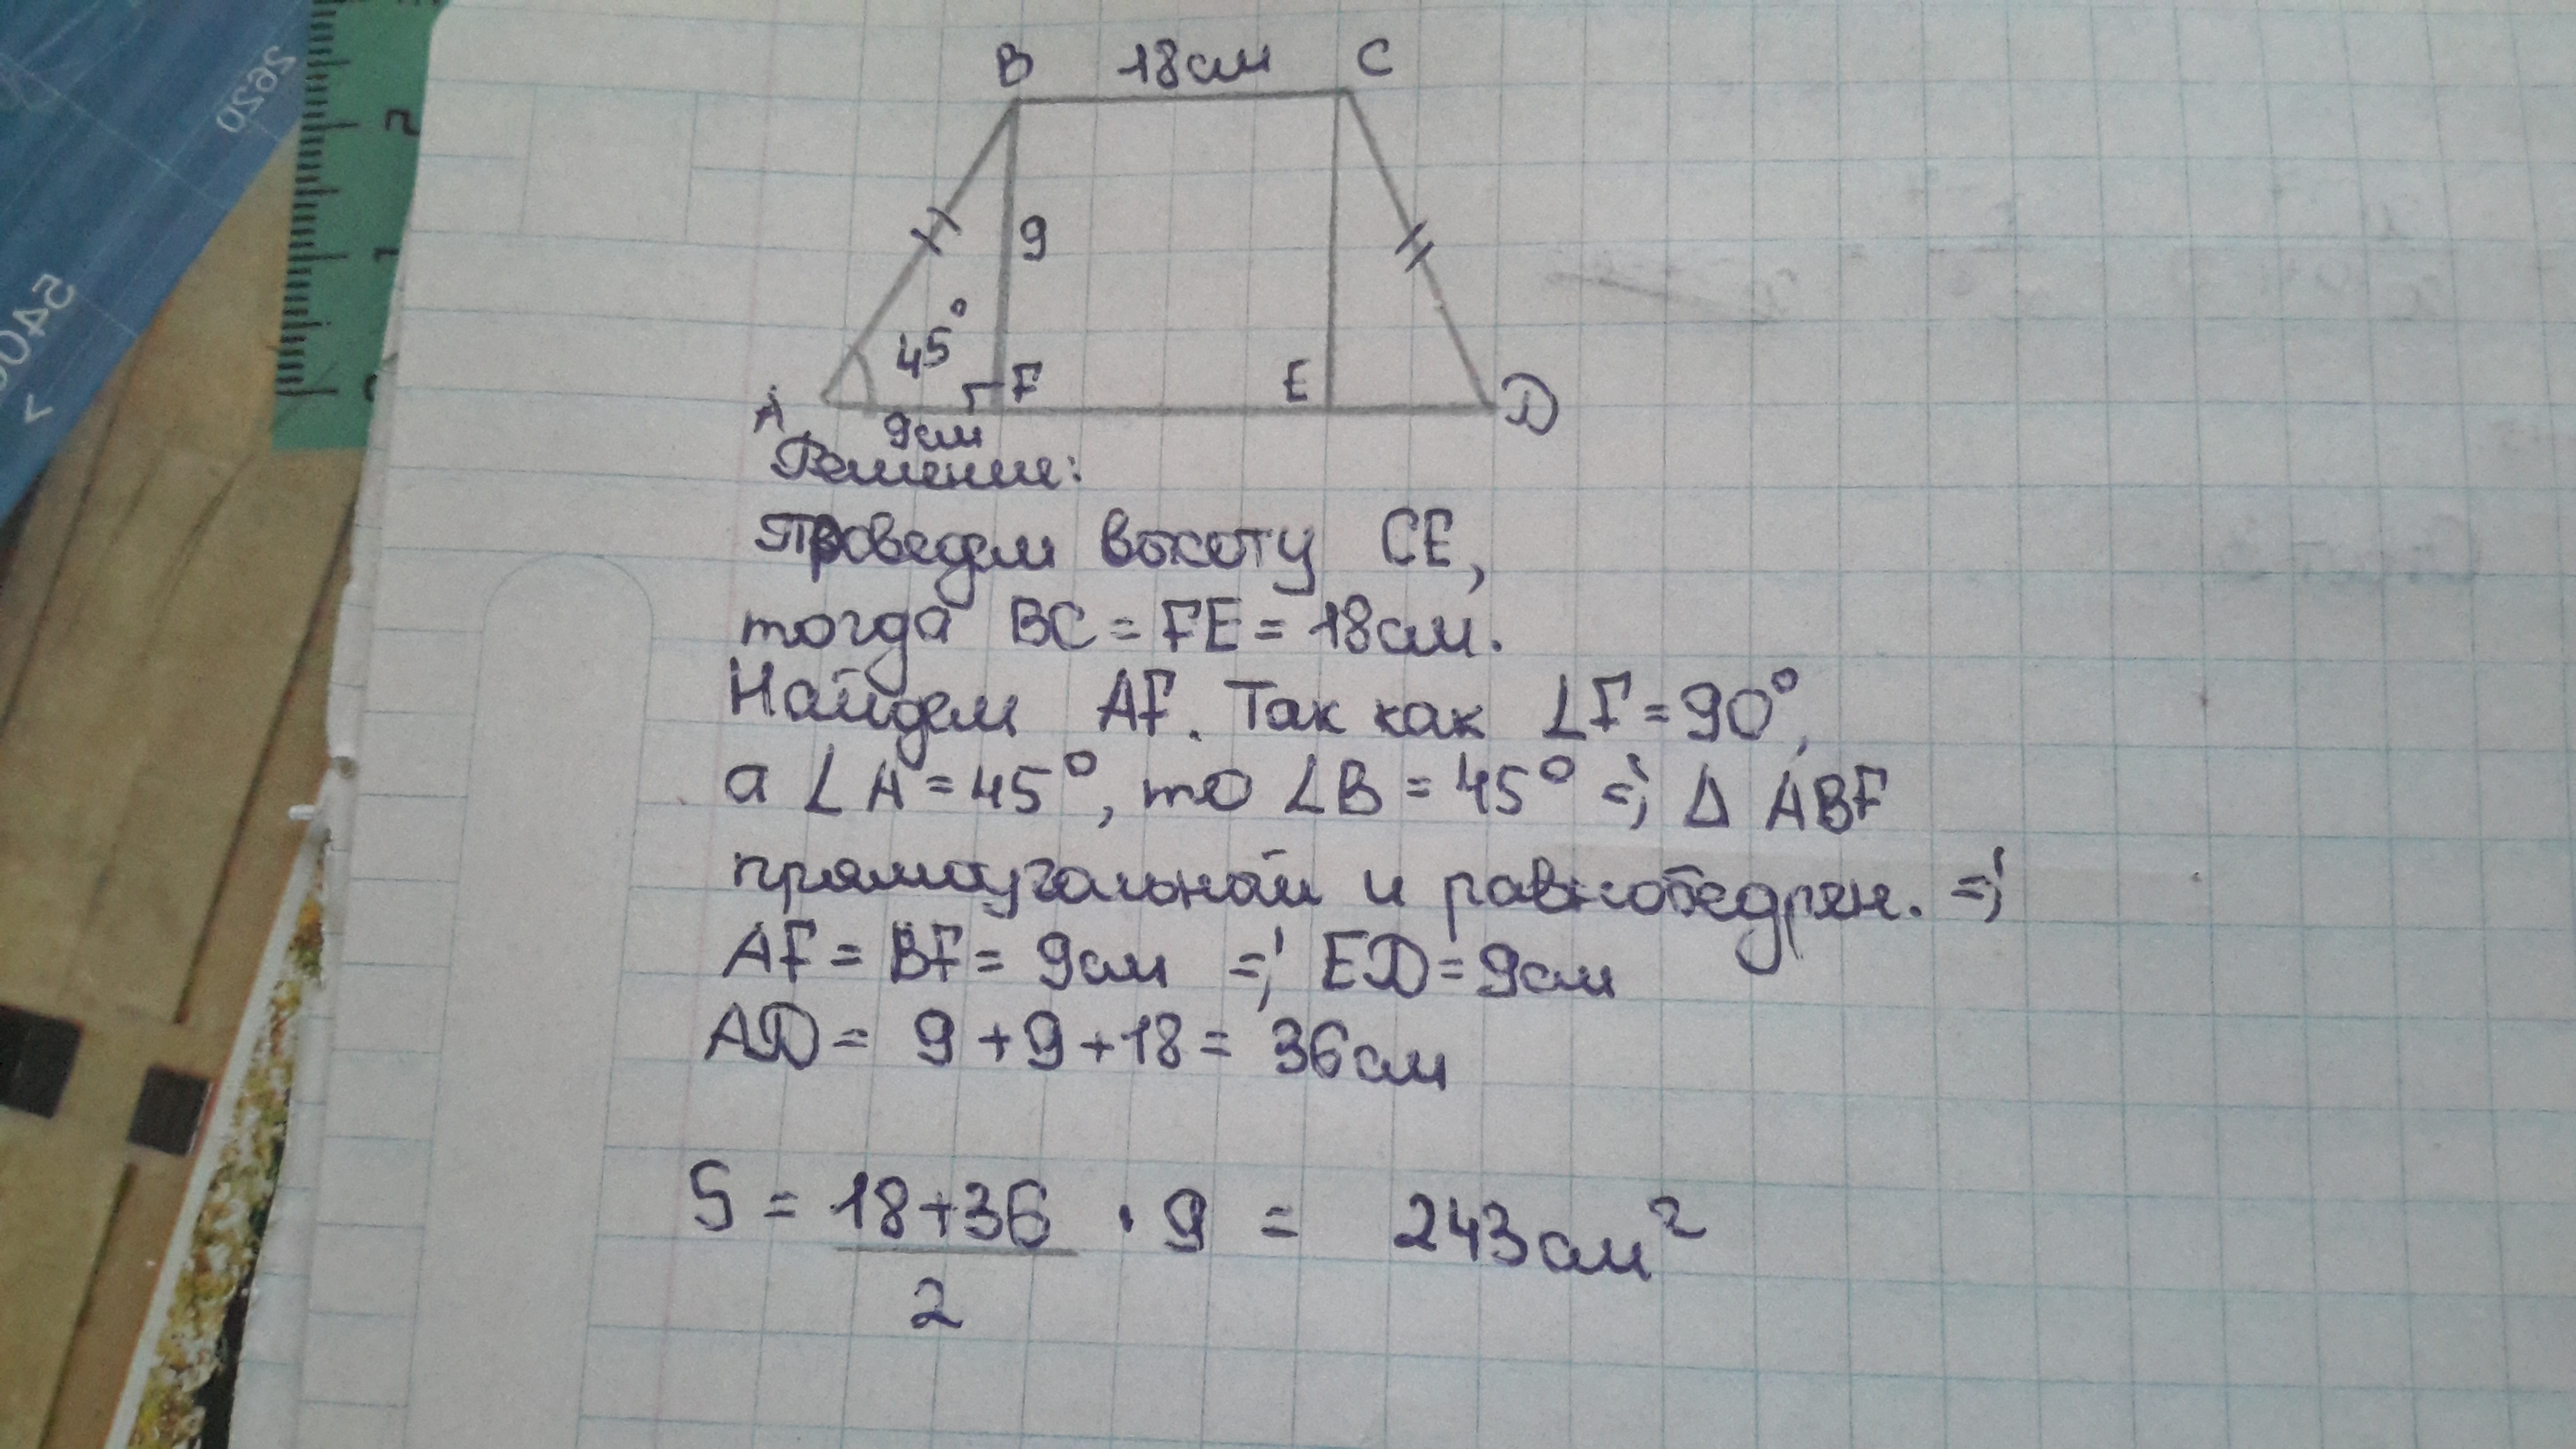 B 18см C
9
45°
A F E D
9см
Решение:
Проведем высоту CE,
тогда BC = FE = 18см.
Найдем AF. Так как ∠F = 90°,
а ∠A = 45°, то ∠B = 45° => Δ ABF
прямоугольный и равнобедрен. =>
AF = BF = 9см => ED = 9см
AD = 9 + 9 + 18 = 36см
S = 18+36 · 9 = 243см²
2
2620
540
2
1